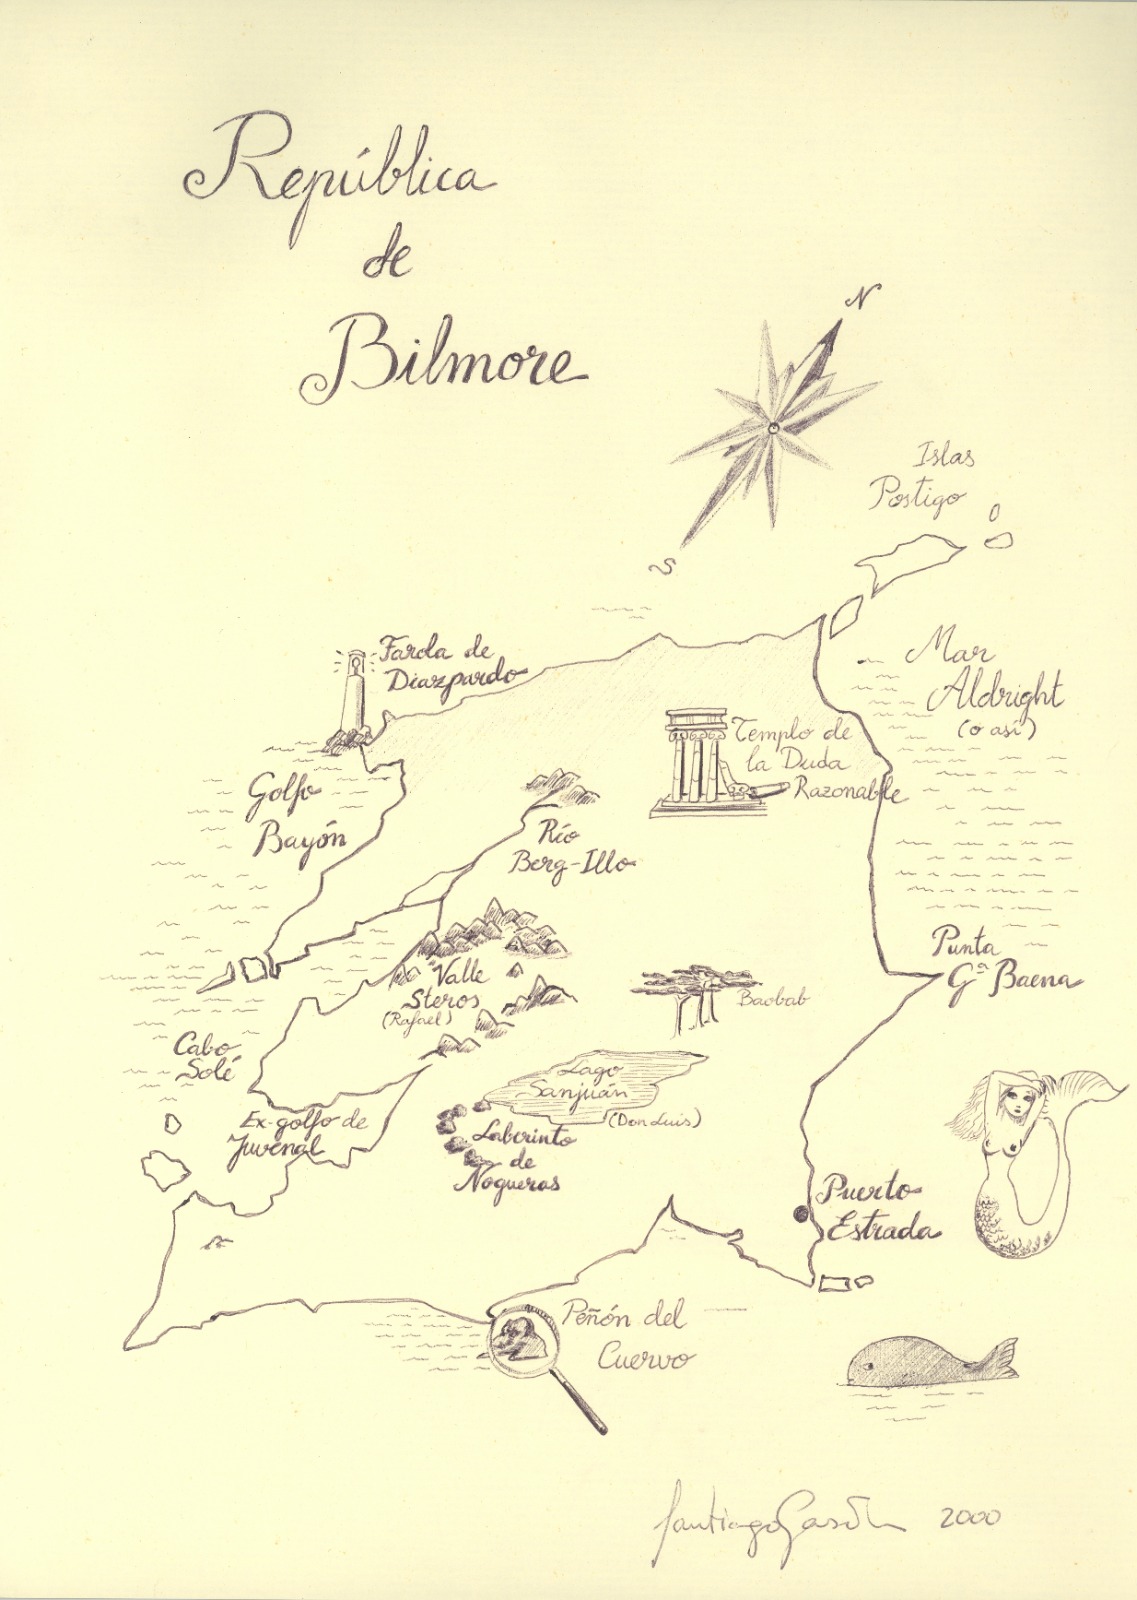 República
de
Bilmore
N
S
Islas
Postigo
Farola de
Diazpardo
Mar
Aldright
(o así)
Templo de
la Duda
Razonable
Golfo
Bayón
Río
Berg-Illo
Valle
Steros
(Rafael)
Punta
Gª Baena
Baobab
Cabo
Solé
Lago
Sanjuán
(Don Luis)
Ex-golfo de
Juvenal
Laberinto
de
Nogueras
Puerto
Estrada
Peñón del
Cuervo
Santiago 2000